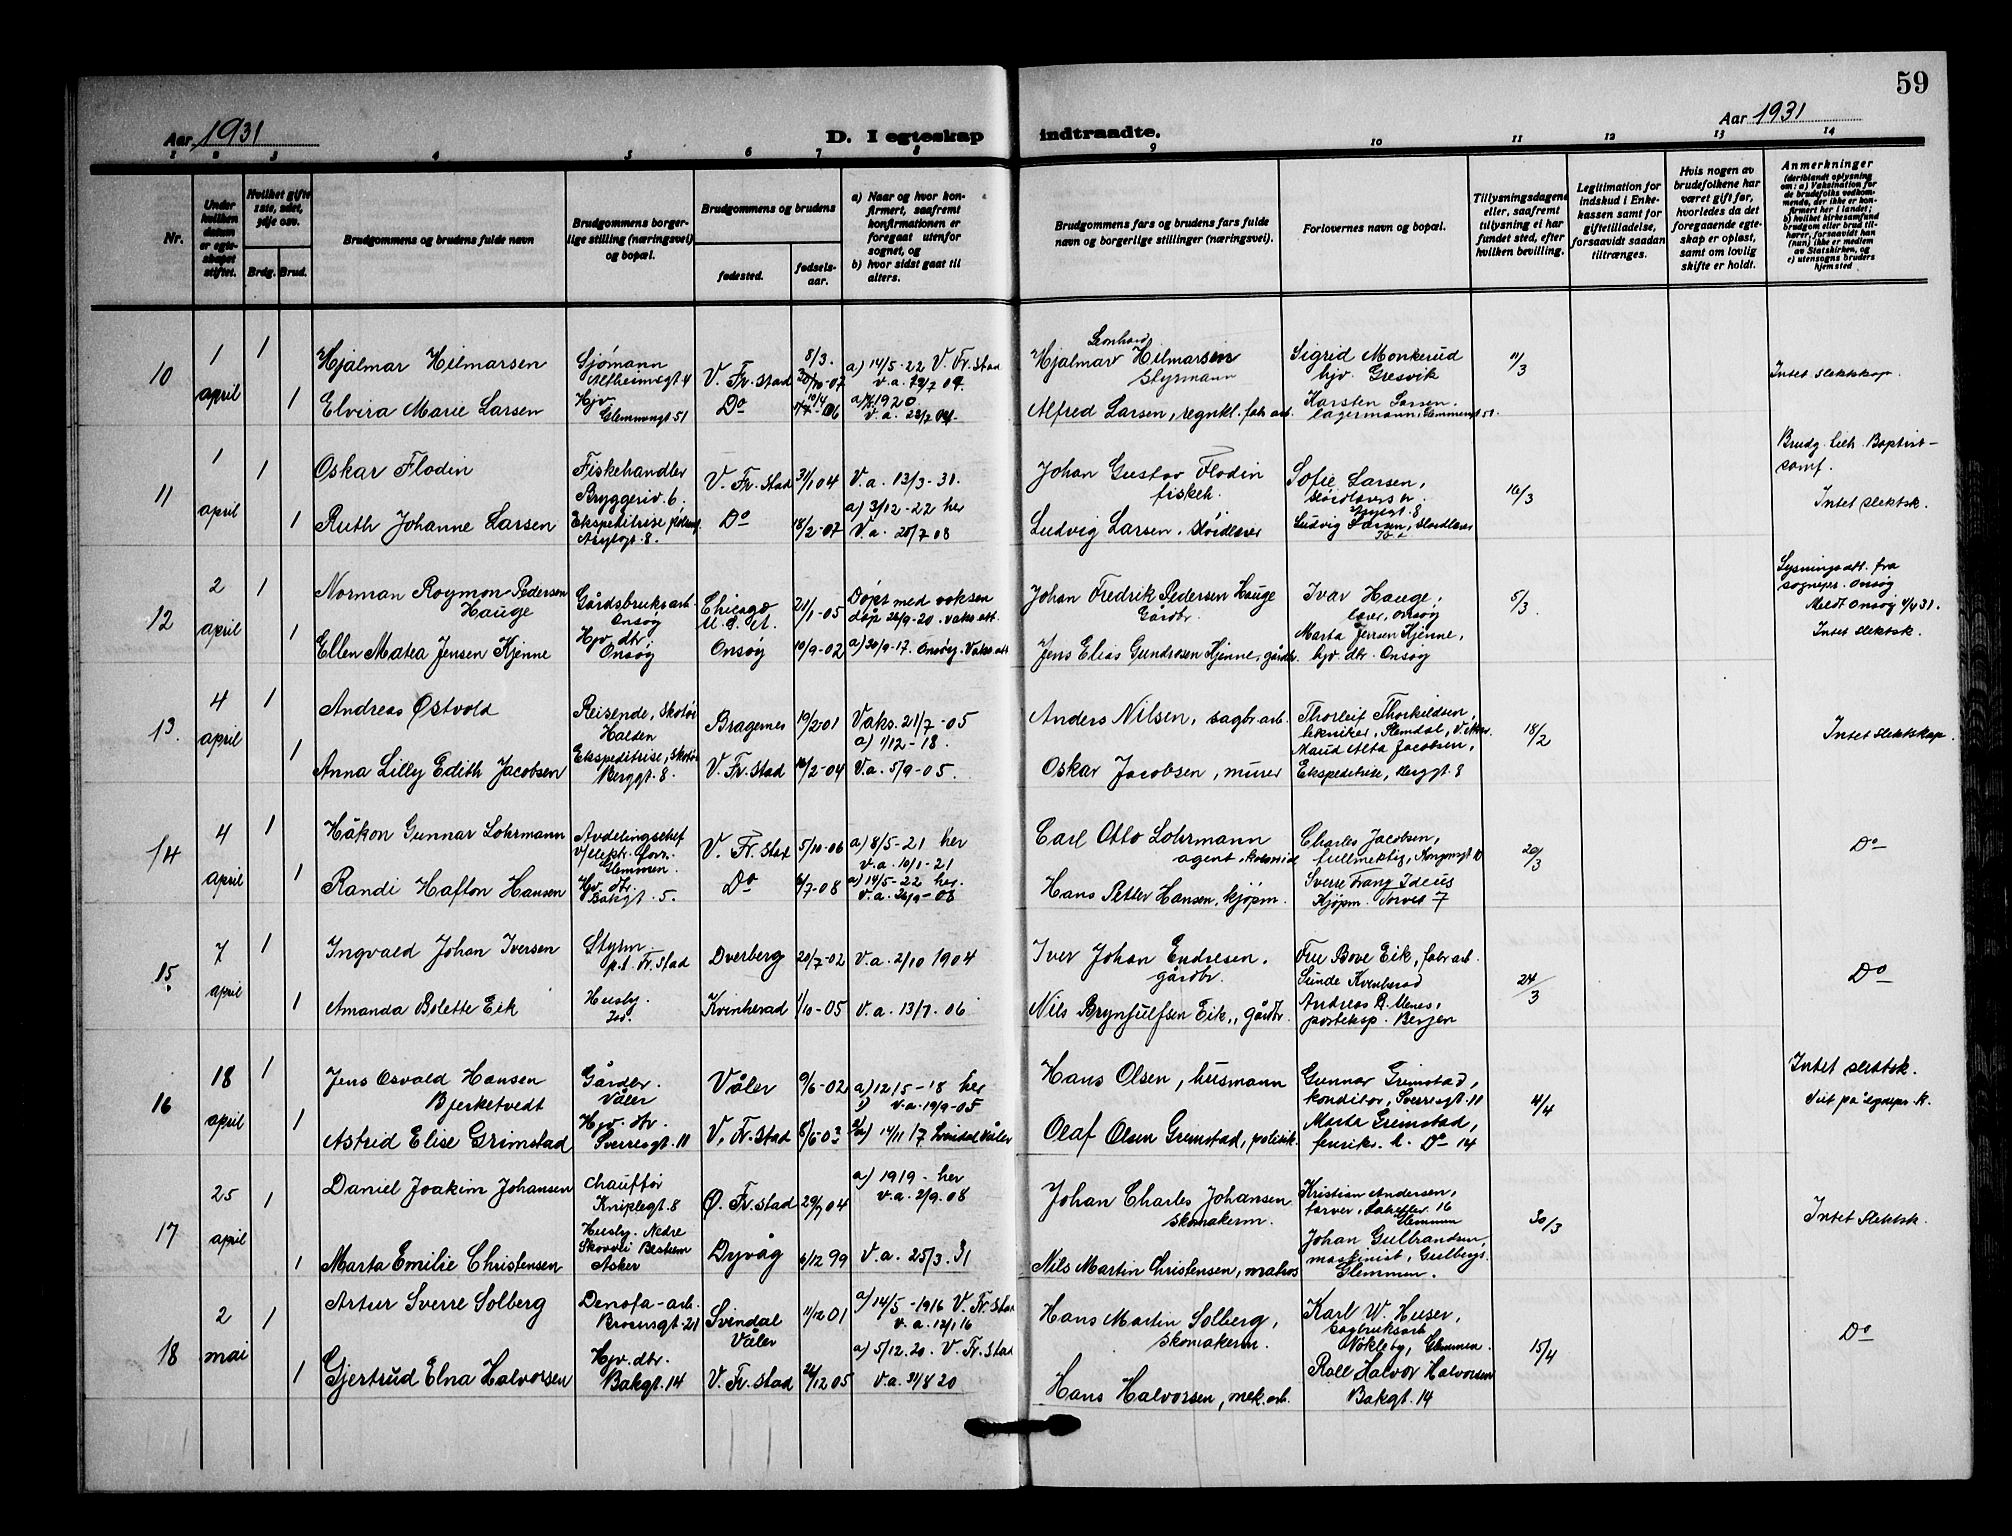 59
Aar 1931
D. I egteskap indtraadte.
Aar 1931
1 2 3 4 5 6 7 8 9 10 11 12 13 14
Nr.
Under hvilken datum er egteskapet stiftet.
Hvilket gifte 1ste, 2det, 3dje osv.
Brdg. Brud.
Brudgommens og brudens fulde navn
Brudgommens borgerlige stilling (næringsvei) og bopæl.
Brudgommens og brudens
fødested.
fødselsaar.
a) Naar og hvor konfirmert, saafremt konfirmationen er foregaat utenfor sognet, og
b) hvor sidst gaat til alters.
Brudgommens fars og brudens fars fulde navn og borgerlige stillinger (næringsvei).
Forlovernes navn og bopæl.
Tillysningsdagene eller, saafremt tillysning ei har fundet sted, efter hvilken bevilling.
Legitimation for indskud i Enkekassen samt for giftetilladelse, forsaavidt saadan tiltrænges.
Hvis nogen av brudefolkene har været gift før, hvorledes da det foregaaende egteskap er opløst, samt om lovlig skifte er holdt.
Anmerkninger
(deriblandt oplysning om: a) Vaksination for de brudefolks vedkommende, der ikke er konfirmert her i landet; b) hvilket kirkesamfund brudgom eller brud tilhører, forsaavidt han (hun) ikke er medlem av Statskirken, og c) utensogns bruders hjemsted
10
1 april
1
Hjalmar Hilmarsen
Sjømann
V. Fr. stad
8/3.
30/10-07
a) 14/5-22 V. Fr. stad
Leonhard
Hjalmar Hilmarsen
styrmann
Sigrid Monkerud
hjv. Gresvik
11/3
Intet slektskap.
1
Elvira Marie Larsen
Hjv.
Glemmengt 51
Do
a) 1920
Alfred Larsen, regnkl. fabr. arb.
Karsten Larsen.
lagermann, Glemmengt 51
11
1 april
1
Oskar Flodin
Fiskehandler
Bryggeriv. 6.
V. Fr. stad
31/1 04
V.a. 13/3-31.
Johan Gustav Flodin
fiskeh.
Sofie Larsen,
16/3
Brudg. tilh. Baptist-
samf.
Intet slektsk.
1
Ruth Johanne Larsen
Asylgt. 8.
Do
18/2-07
a) 3/12-22 her
V.a. 20/7 08
Ludvig Larsen, sløidlærer
Ludvig Larsen, sløidlærer
12
2 april
1
Norman Roymon Pedersen
Hauge
Gårdsbruksarb.
Onsøy
Chicago
U.S.A.
21/1-05
Døpt med voksen
dåp 26/9-20. vaks. att.
Johan Fredrik Pedersen Hauge
Gårdbr.
Ivar Hauge,
Onsøy
5/3.
Lysningsatt. fra
sognepr. Onsøy
Meldt Onsøy 4/4 31.
Intet slektsk.
1
Ellen Matea Jensen Kjenne
Hjv. dtr.
Onsøy
Onsøy
10/9-02
a) 30/9-17. Onsøy. Vaks att
Jens Elias Gundrosen Kjenne, gårdbr.
Marta Jensen Kjenne,
hjv. dtr. Onsøy
13.
4 april
1
Andreas Østvold
Reisende, skotøi
Halden
Bragernes
19/2-01
Vaks. 21/7-05
a) 1/12-18.
Anders Nilsen, sagbr. arb.
Thorleif Thorkildsen,
tekniker, Slemdal, V. Aker.
18/2
Intet slektskap.
1
Anna Lilly Edith Jacobsen
Ekspeditrise, skotøi
Berggt. 8.
V. Fr. stad
V.a. 5/9-05.
Oskar Jacobsen, murer
Maud Alta Jacobsen,
Ekspeditrise, Berggt. 8
14
4 april
1
Håkon Gunnar Lohrmann
Avdelingschef
v/elektr. forr.
Glemmen.
V. Fr. stad
5/10-06
a) 8/5-21 her
v.a. 10/1-21
Carl Otto Lohrmann
agent
Charles Jacobsen,
fullmektig
20/3
Do
1
Randi Hafton Hansen
Hjv. dtr.
Bakgt. 5.
Do
a) 14/5-22 her.
v.a. 26/9-08
Hans Petter Hansen, kjøpm.
Sverre Franz Ideus
Kjøpm. Torvet 7
15.
7 april
1
Ingvald Johan Iversen
Styrm.
p.t. Fr. stad
Dverberg
20/7-02
V.a. 2/10 1904
Iver Johan Endresen.
gårdbr.
Fru Bove Eik, fabr. arb.
Sunde Kvinherad
24/3
Do
1
Amanda Bolette Eik
Husby.
Kvinherad
1/10-05
V.a. 13/7. 06
Nils Brynjulfsen Eik, gårdbr.
Andreas B. Menes,
posteksp. Bergen
16
18 april
1
Jens Osvald Hansen
Bjerketvedt
Gårdbr.
Våler
Våler
9/6-02
a) 12/5-18 her
v.a. 19/9-05
Hans Olsen, husmann
Gunnar Grimstad,
konditor, Sverresgt. 11
4/4
Intet slektsk.
1
Astrid Elise Grimstad
Hjv. dtr.
Sverresgt. 11
V. Fr. stad
8/6-03
a) 14/11 17 Svindal Våler
Olaf Olsen Gremstad, politik.
Marta Grimstad,
Do 14
17
25 april
1
Daniel Joakim Johansen
Chauffør
Kniplegt. 8
Ø. Fr. stad
a) 1919- her
v.a. 2/9. 08
Johan Charles Johansen
skomakerm.
Kristian Andersen,
farver
Glemmen
30/3
Intet slektsk.
1
Marta Emilie Christensen
Husby. Nedre
Skovvei Bestum
Asker
Dyvåg
6/12 99
V.a. 25/3. 31
Nils Martin Christensen, matros
Johan Gulbrandsen,
maskinist, Gulbergs.
Glemmen.
18
2 mai
1
Artur Sverre Solberg
Denofa-arb.
Brosusgt. 21
Svindal
Våler
11/12 01
a) 14/5-1916 V. Fr. stad
v.a. 12/1 16
Hans Martin Solberg,
skomakerm.
Karl W. Huser,
sagbruksarb
Nøkleby, Glemmen.
15/4
Do
1
Gjertrud Elna Halvorsen
Hjv. dtr.
Bakgt. 14
V. Fr. stad
26/12 05
a) 5/12. 20. V. Fr. stad
v.a. 31/8 20
Hans Halvorsen, mek. arb.
Rolf Halvor Halvorsen
Bakgt. 14